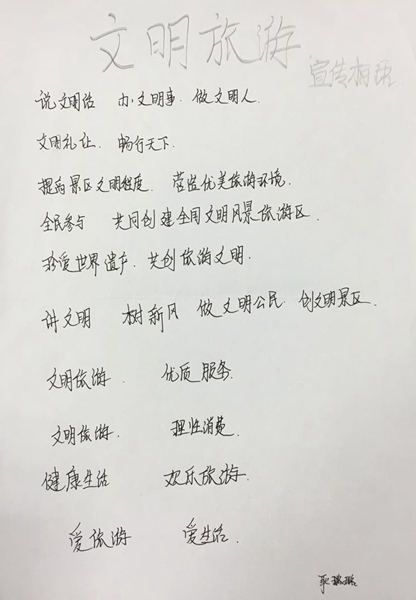 文明旅游
宣传标语
说文明话 办文明事 做文明人.
文明礼让. 畅行天下.
提高景区文明程度. 营造优美旅游环境.
全民参与 共同创建全国文明风景旅游区.
珍爱世界遗产. 共创旅游文明.
讲文明 树新风 做文明公民. 创文明景区.
文明旅游. 优质服务.
文明旅游. 理性消费.
健康生活 欢乐旅游.
爱旅游 爱生活.